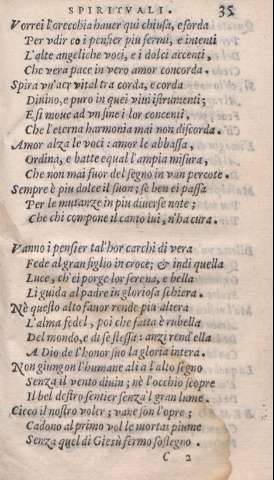 SPIRITVALI. 35
Vorrei l'orecchia hauer quì chiusa, e sorda
Per vdir co i pensier più fermi, e intenti
L'alte angeliche voci, e i dolci accenti,
Che vera pace in vero amor concorda.
Spira vn'aer vital tra corda, e corda
Diuino, e puro in quei viui istrumenti;
E si moue ad vn fine i lor concenti,
Che l'eterna harmonia mai non discorda.
Amor alza le voci: amor le abbassa,
Ordina, e batte equal l'ampia misura,
Che non mai fuor del segno in van percote.
Sempre è più dolce il suon; se ben ei passa
Per le mutanze in più diuerse note;
Che chi compone il canto iui, n'ha cura.
Vanno i pensier tal'hor carchi di vera
Fede al gran figlio in croce; & indi quella
Luce, ch'ei porge lor serena, e bella
Li guida al padre in gloriosa schiera.
Nè questo alto fauor rende più altera
L'alma fedel, poi che fatta è rubella
Del mondo, e di se stessa: anzi rend'ella
A Dio de l'honor suo la gloria intera.
Non giungon l'humane ali a l'alto segno
Senza il vento diuin; nè l'occhio scopre
Il bel destro sentier senza'l gran lume.
Cieco il nostro voler; vane son l'opre;
Cadono al primo vol le mortai piume
Senza quel di Giesù fermo sostegno.
C 2